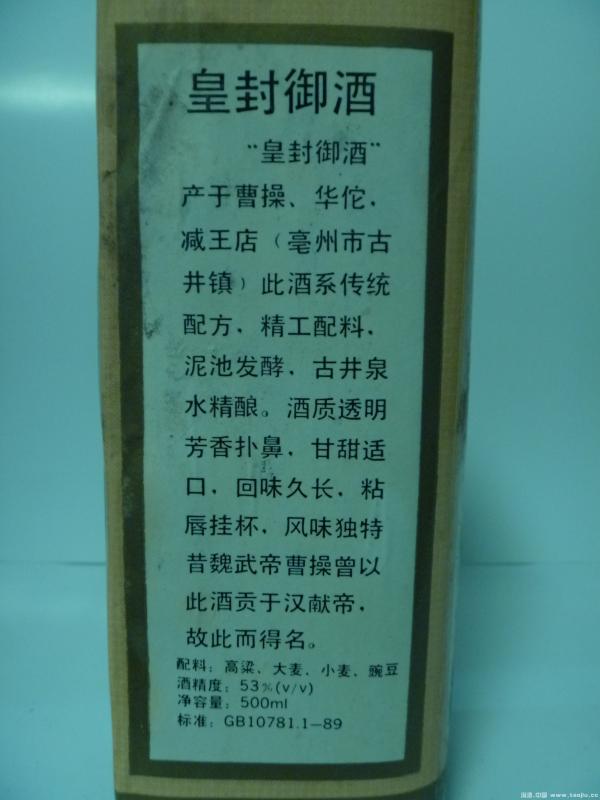 皇封御酒
“皇封御酒”
产于曹操、华佗，
减王店（亳州市古
井镇）此酒系传统
配方，精工配料，
泥池发酵，古井泉
水精酿。酒质透明
芳香扑鼻，甘甜适
口，回味久长，粘
唇挂杯，风味独特
昔魏武帝曹操曾以
此酒贡于汉献帝，
故此而得名。
配料：高粱、大麦、小麦、豌豆
酒精度：53%(v/v)
净容量：500ml
标准：GB10781.1—89
淘酒.中国 www.taojiu.cc